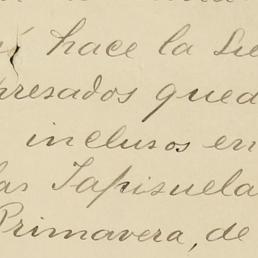 hace la
presados qued
inclusos en
las Tapisuela
Primavera, de